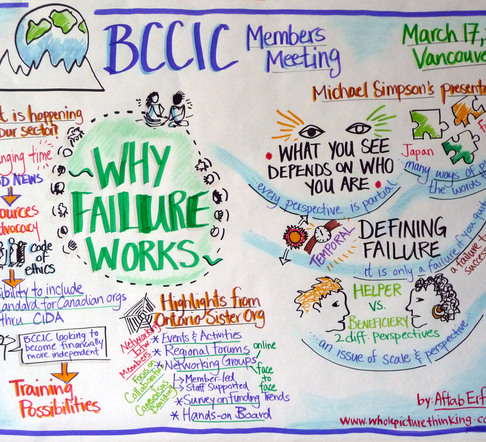 BCCIC Members
Meeting
March 17,
Vancouver
Michael Simpson's present
t is happening
our sector?
nging time
D NEWS
ources
dvocacy
code of
ethics
ibility to include
tandard for Canadian orgs
thru CIDA
BCCIC looking to
become financially
more independent
Training
Possibilities
WHY
FAILURE
WORKS
Highlights from
Ontario Sister Org
Members
* Events & Activities
* Regional Forums
* Networking Groups
online
face
to
face
Member-led
Staff supported
* Survey on funding Trends
* Hands-on Board
WHAT YOU SEE
DEPENDS ON WHO
YOU ARE
every perspective is partial
Japan
many ways of
the words
TEMPORAL
DEFINING
FAILURE
it is only a failure if you
a failure to
success
HELPER
VS.
BENEFICIERY
2 diff. perspectives
an issue of scale & perspective
by: Aftab Erf
www.wholepicturethinking.co